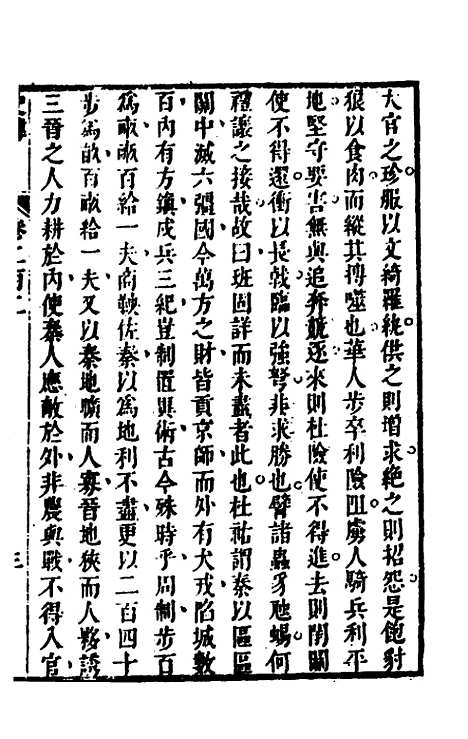 大官之珍服以文綺羅紈供之則增求絕之則招怨是飽豺
狼以食肉而縱其摶噬也華人步卒利險阻虜人騎兵利平
地堅守要害無與追奔競逐來則杜險使不得進去則閉關
使不得還衝以長戟臨以強弩非求勝也譬諸蟲豸虺蜴何
禮讓之接哉故曰班固詳而未盡者此也杜祐謂秦以區區
關中滅六彊國今萬方之財皆貢京師而外有犬戎陷城數
百內有方鎮戍兵三紀豈制置異術古今殊時乎周制步百
為畝畝百給一夫商鞅佐秦以為地利不盡更以二百四十
步為畝百畝給一夫又以秦地曠而人寡晉地狹而人夥誘
三晉之人力耕於內使秦人應敵於外非農與戰不得入官
卷二百二
三